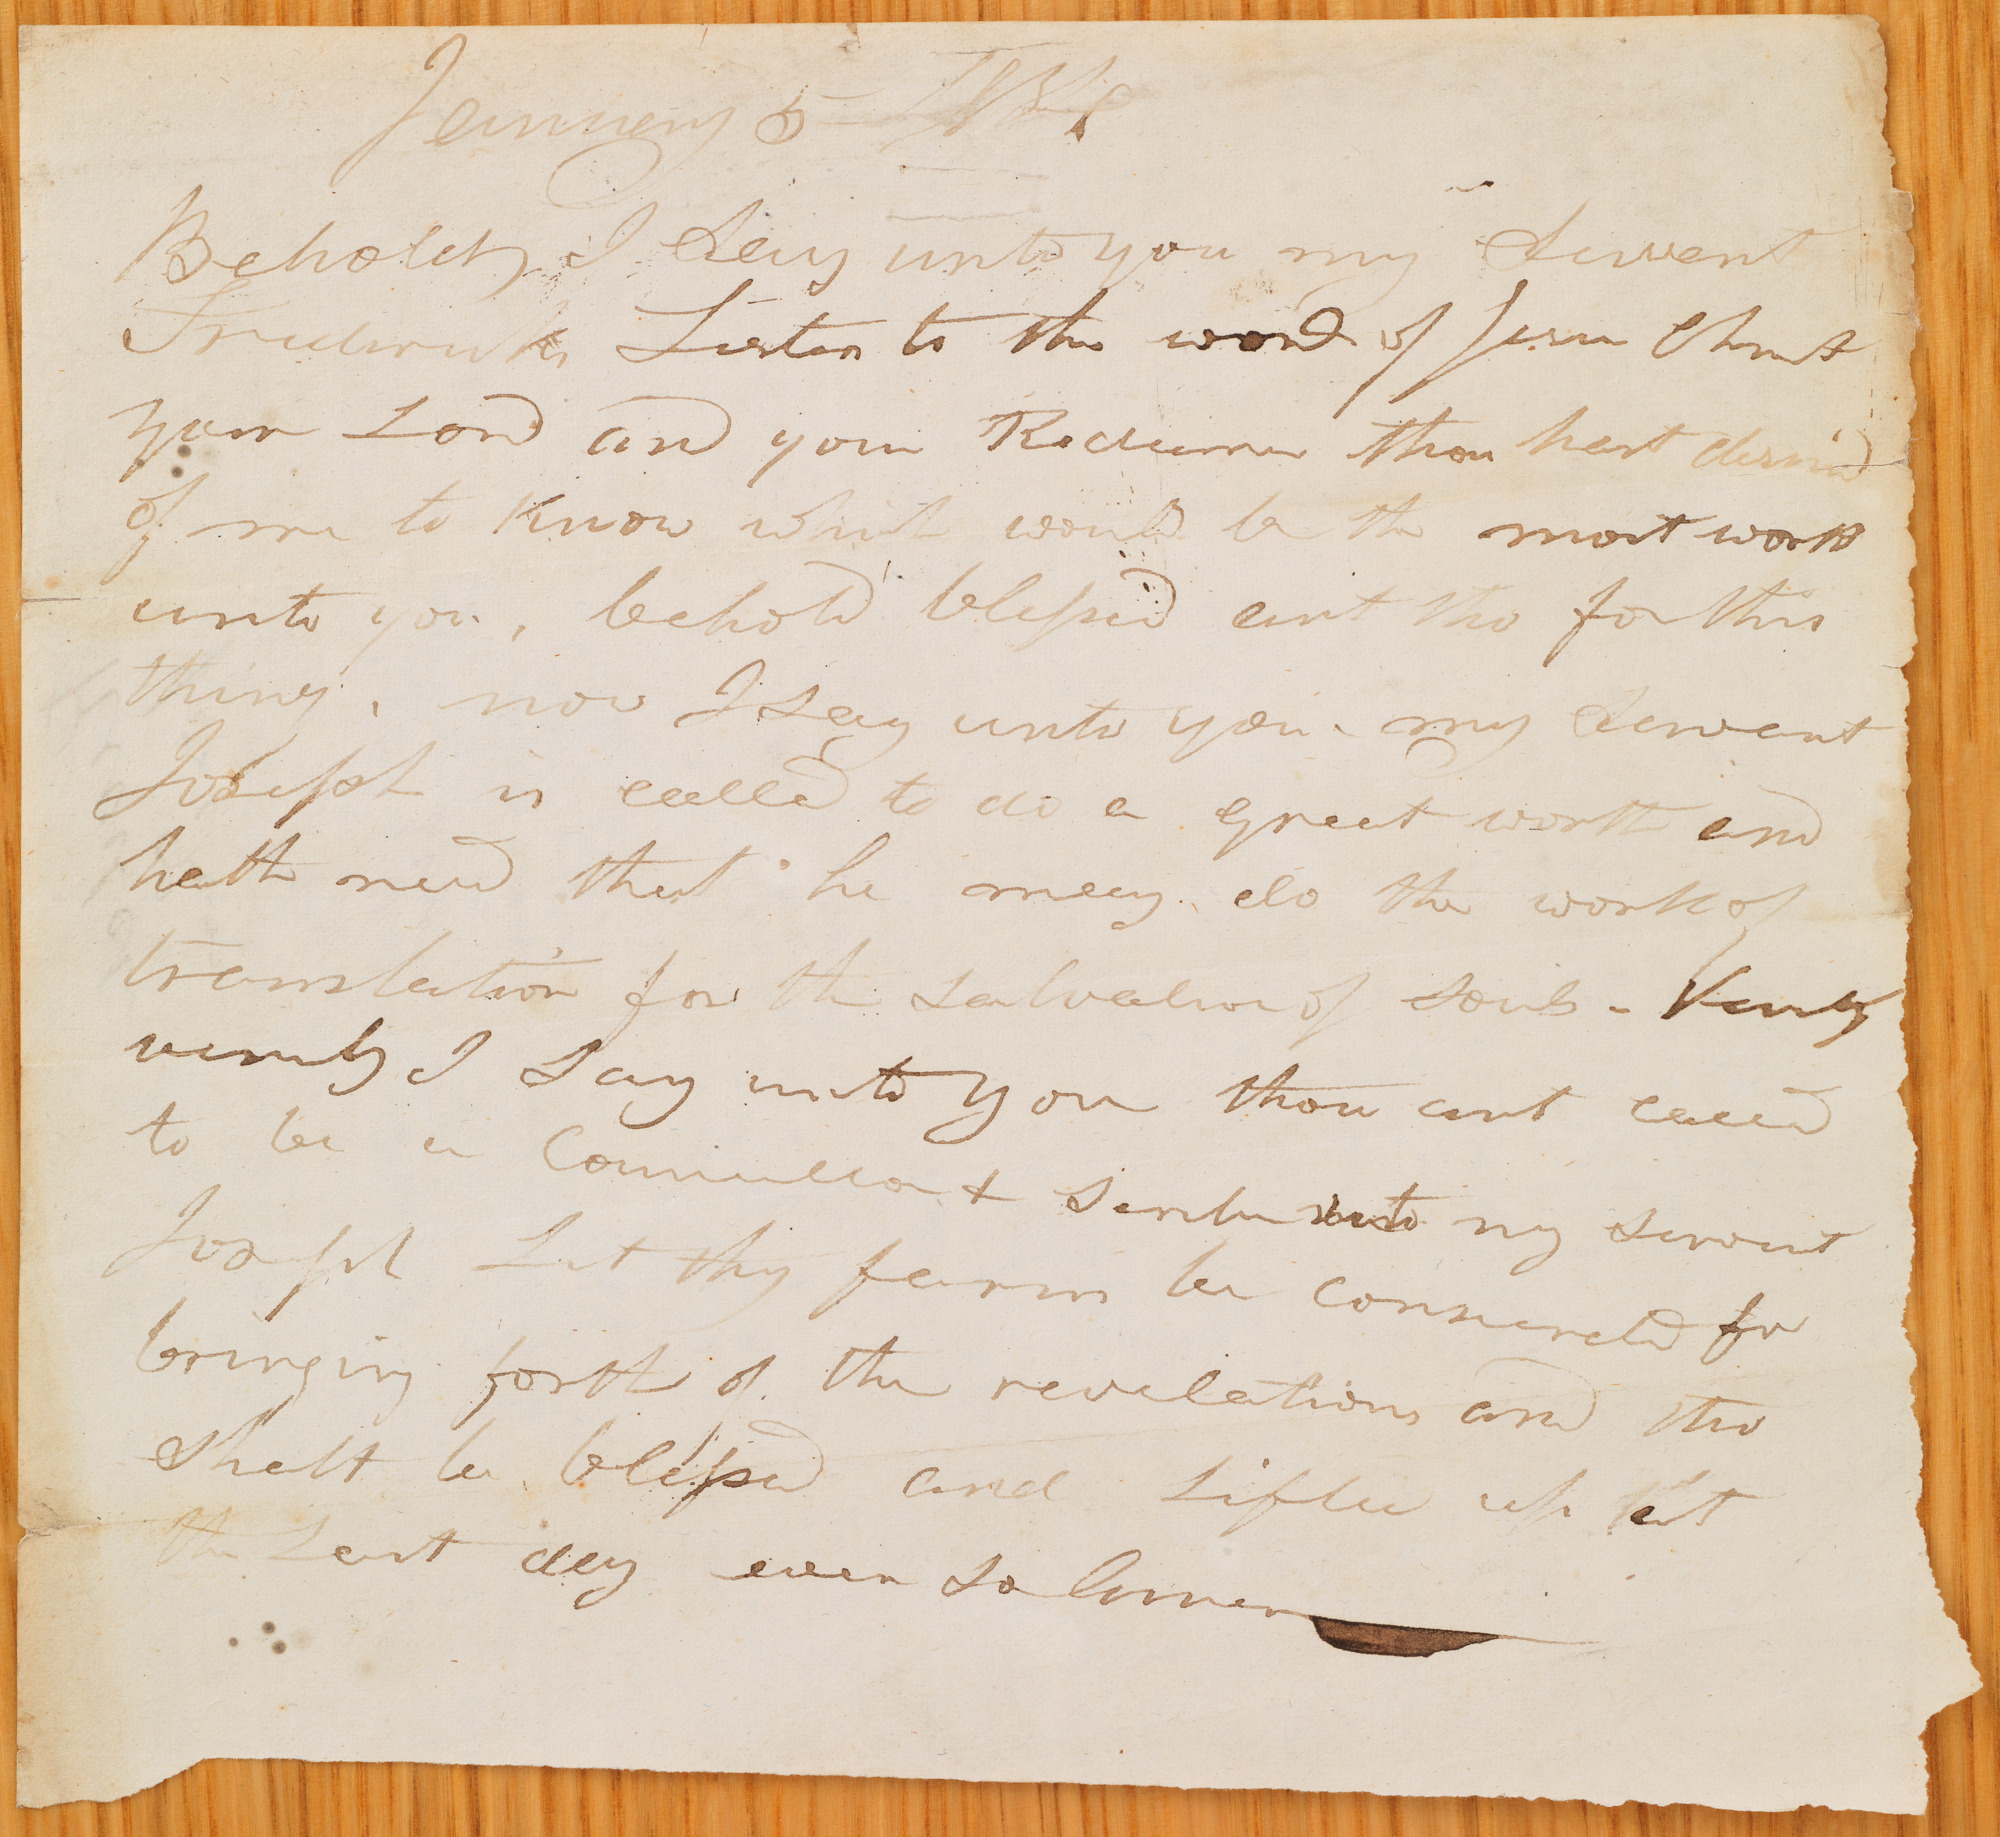 January 5
Behold, I say unto you my Servent
Frederick Listen to the word of Jesu Christ
your Lord and your Redeemer thou hast desired
of me to know which would be the most worth
unto you, behold blessed art tho for this
thing, now I say unto you my Servent
Joseph is called to do a great work and
hath need that he may do the work of
translation for the salvation of souls - Verily
verily I say unto you thou art called
to be a Councellor & scribe unto my servent
Joseph Let thy farm be consecrated for
bringing forth of the revelations and tho
shalt be blessed and lifted up at
the last day even so Amen